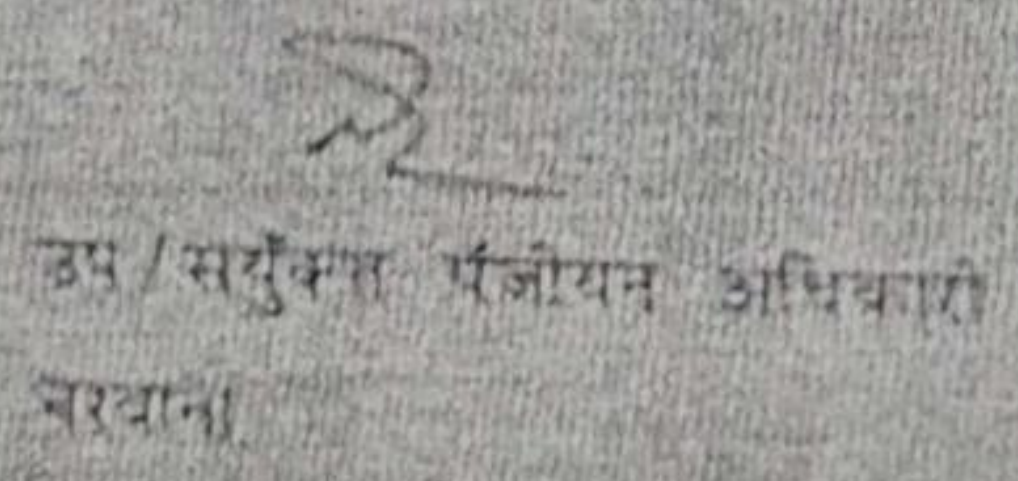 उप/सयुँक्त पंजीयन अधिकारी
नरवाना